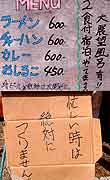 MENU
ラーメン 600-
チャーハン 600-
カレー 600-
おしるこ 450-
大展望風呂有!!
2食付宿泊
忙しい時は
絶対に
つくりません